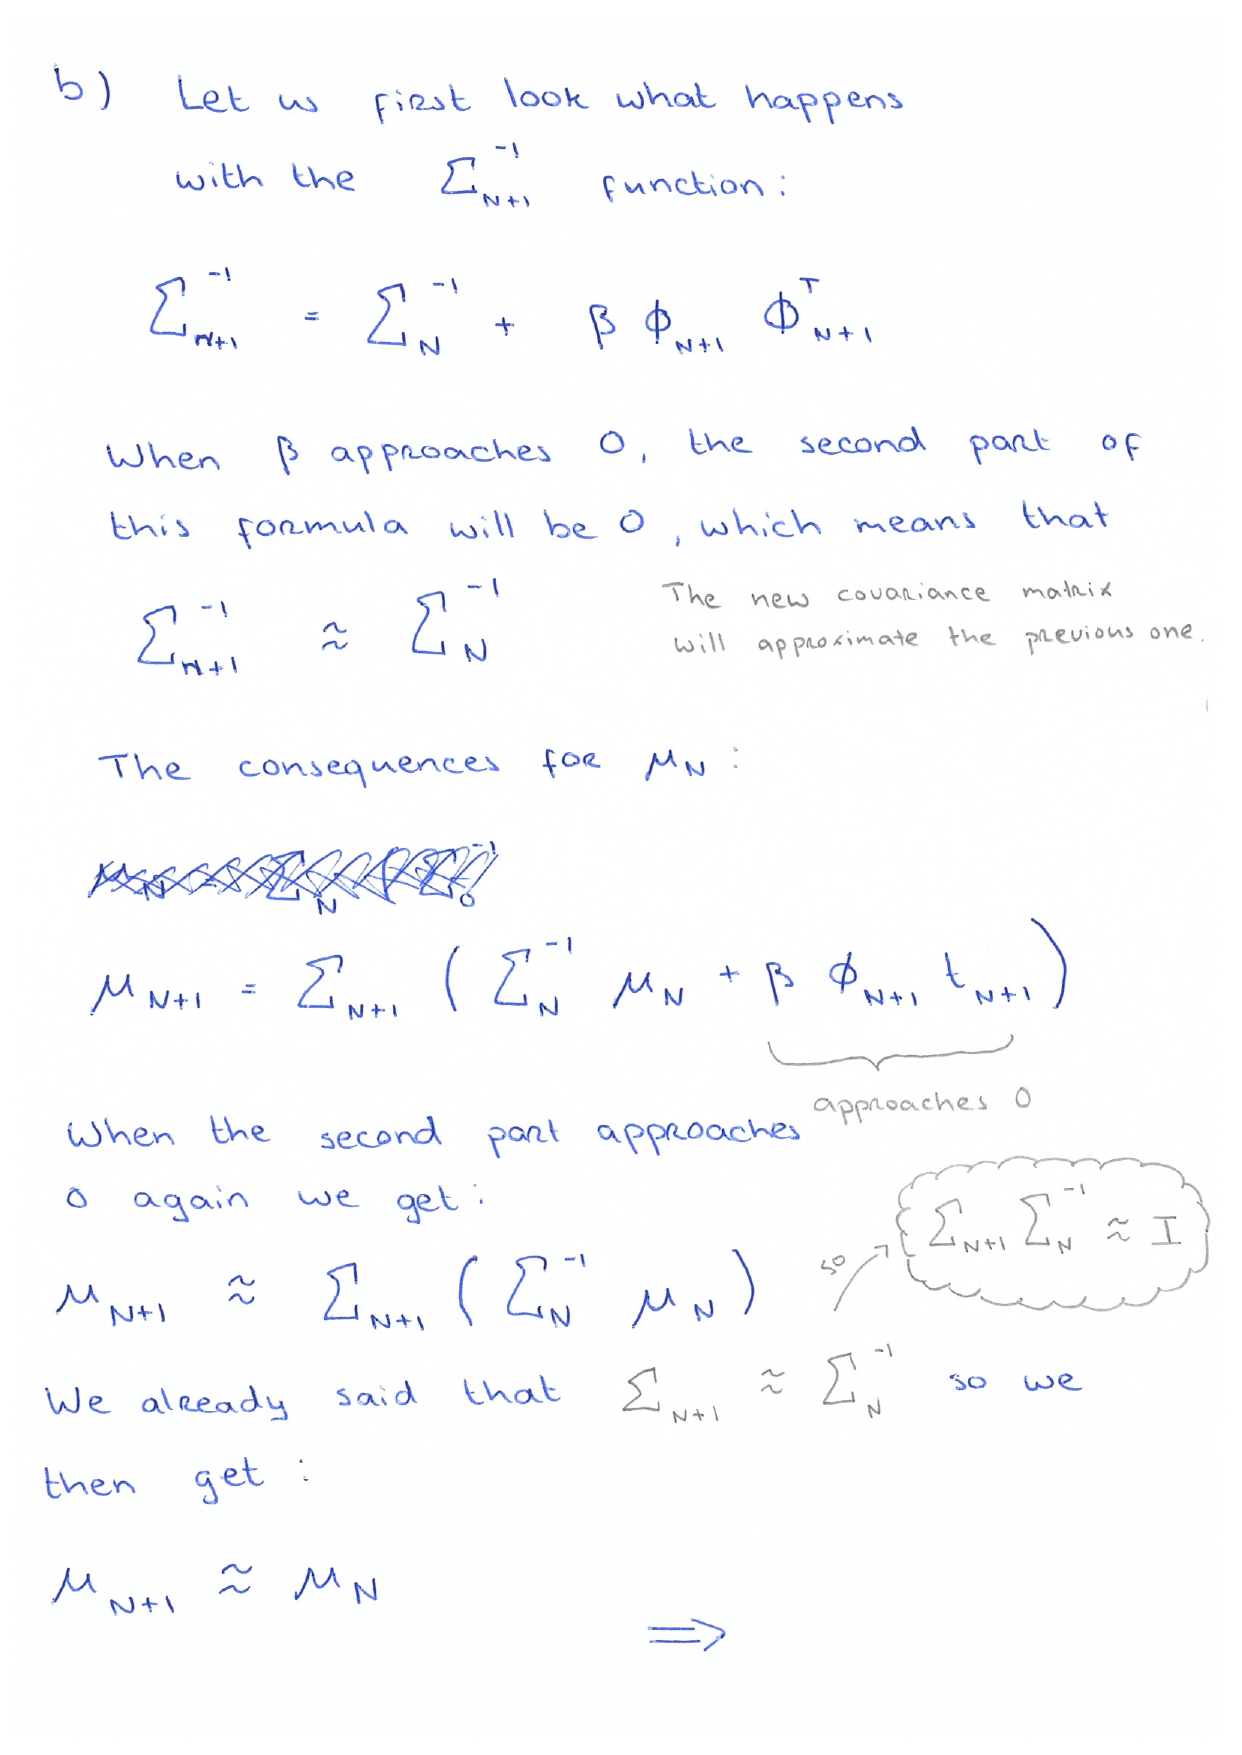 b) Let us first look what happens
with the Σ_{N+1}^{-1} function:
Σ_{N+1}^{-1} = Σ_N^{-1} + β ϕ_{N+1} ϕ_{N+1}^T
When β approaches 0, the second part of
this formula will be 0, which means that
Σ_{N+1}^{-1} ≈ Σ_N^{-1}
The new covariance matrix
will approximate the previous one.
The consequences for μ_N:
μ_{N+1} = Σ_{N+1} ( Σ_N^{-1} μ_N + β ϕ_{N+1} t_{N+1} )
approaches 0
When the second part approaches
0 again we get:
μ_{N+1} ≈ Σ_{N+1} ( Σ_N^{-1} μ_N )
so
Σ_{N+1} Σ_N^{-1} ≈ I
We already said that Σ_{N+1} ≈ Σ_N^{-1} so we
then get:
μ_{N+1} ≈ μ_N
⇒